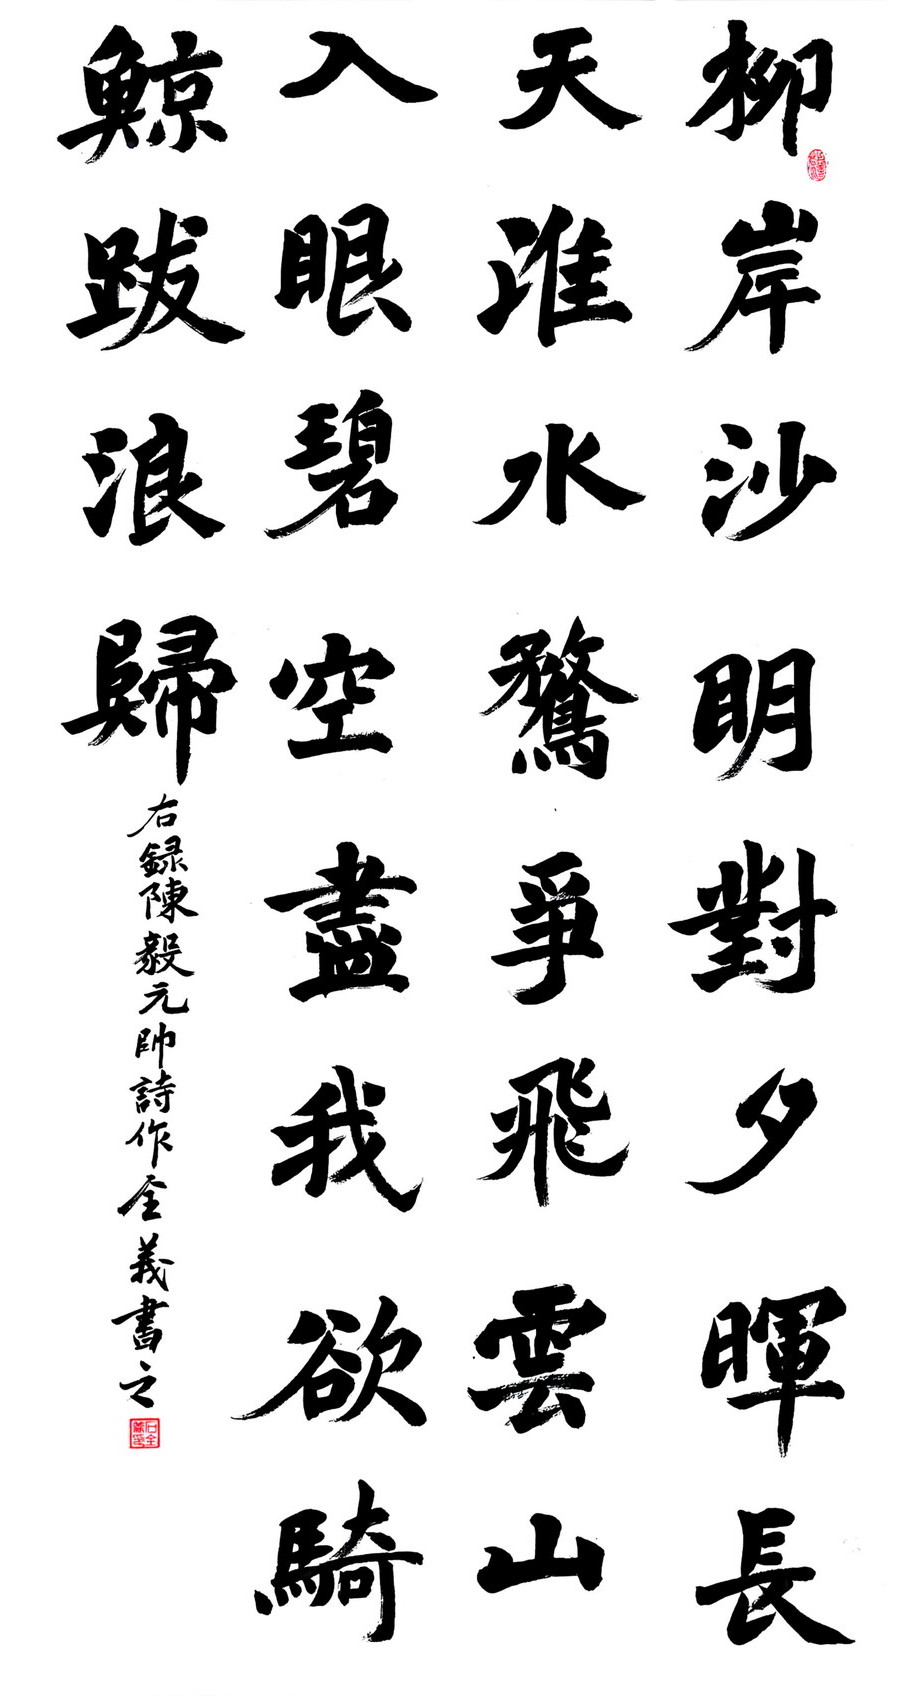 柳岸沙明對夕暉長
天淮水鶩爭飛雲山
入眼碧空盡我欲騎
鯨跋浪歸
右録陳毅元帥詩作全義書之